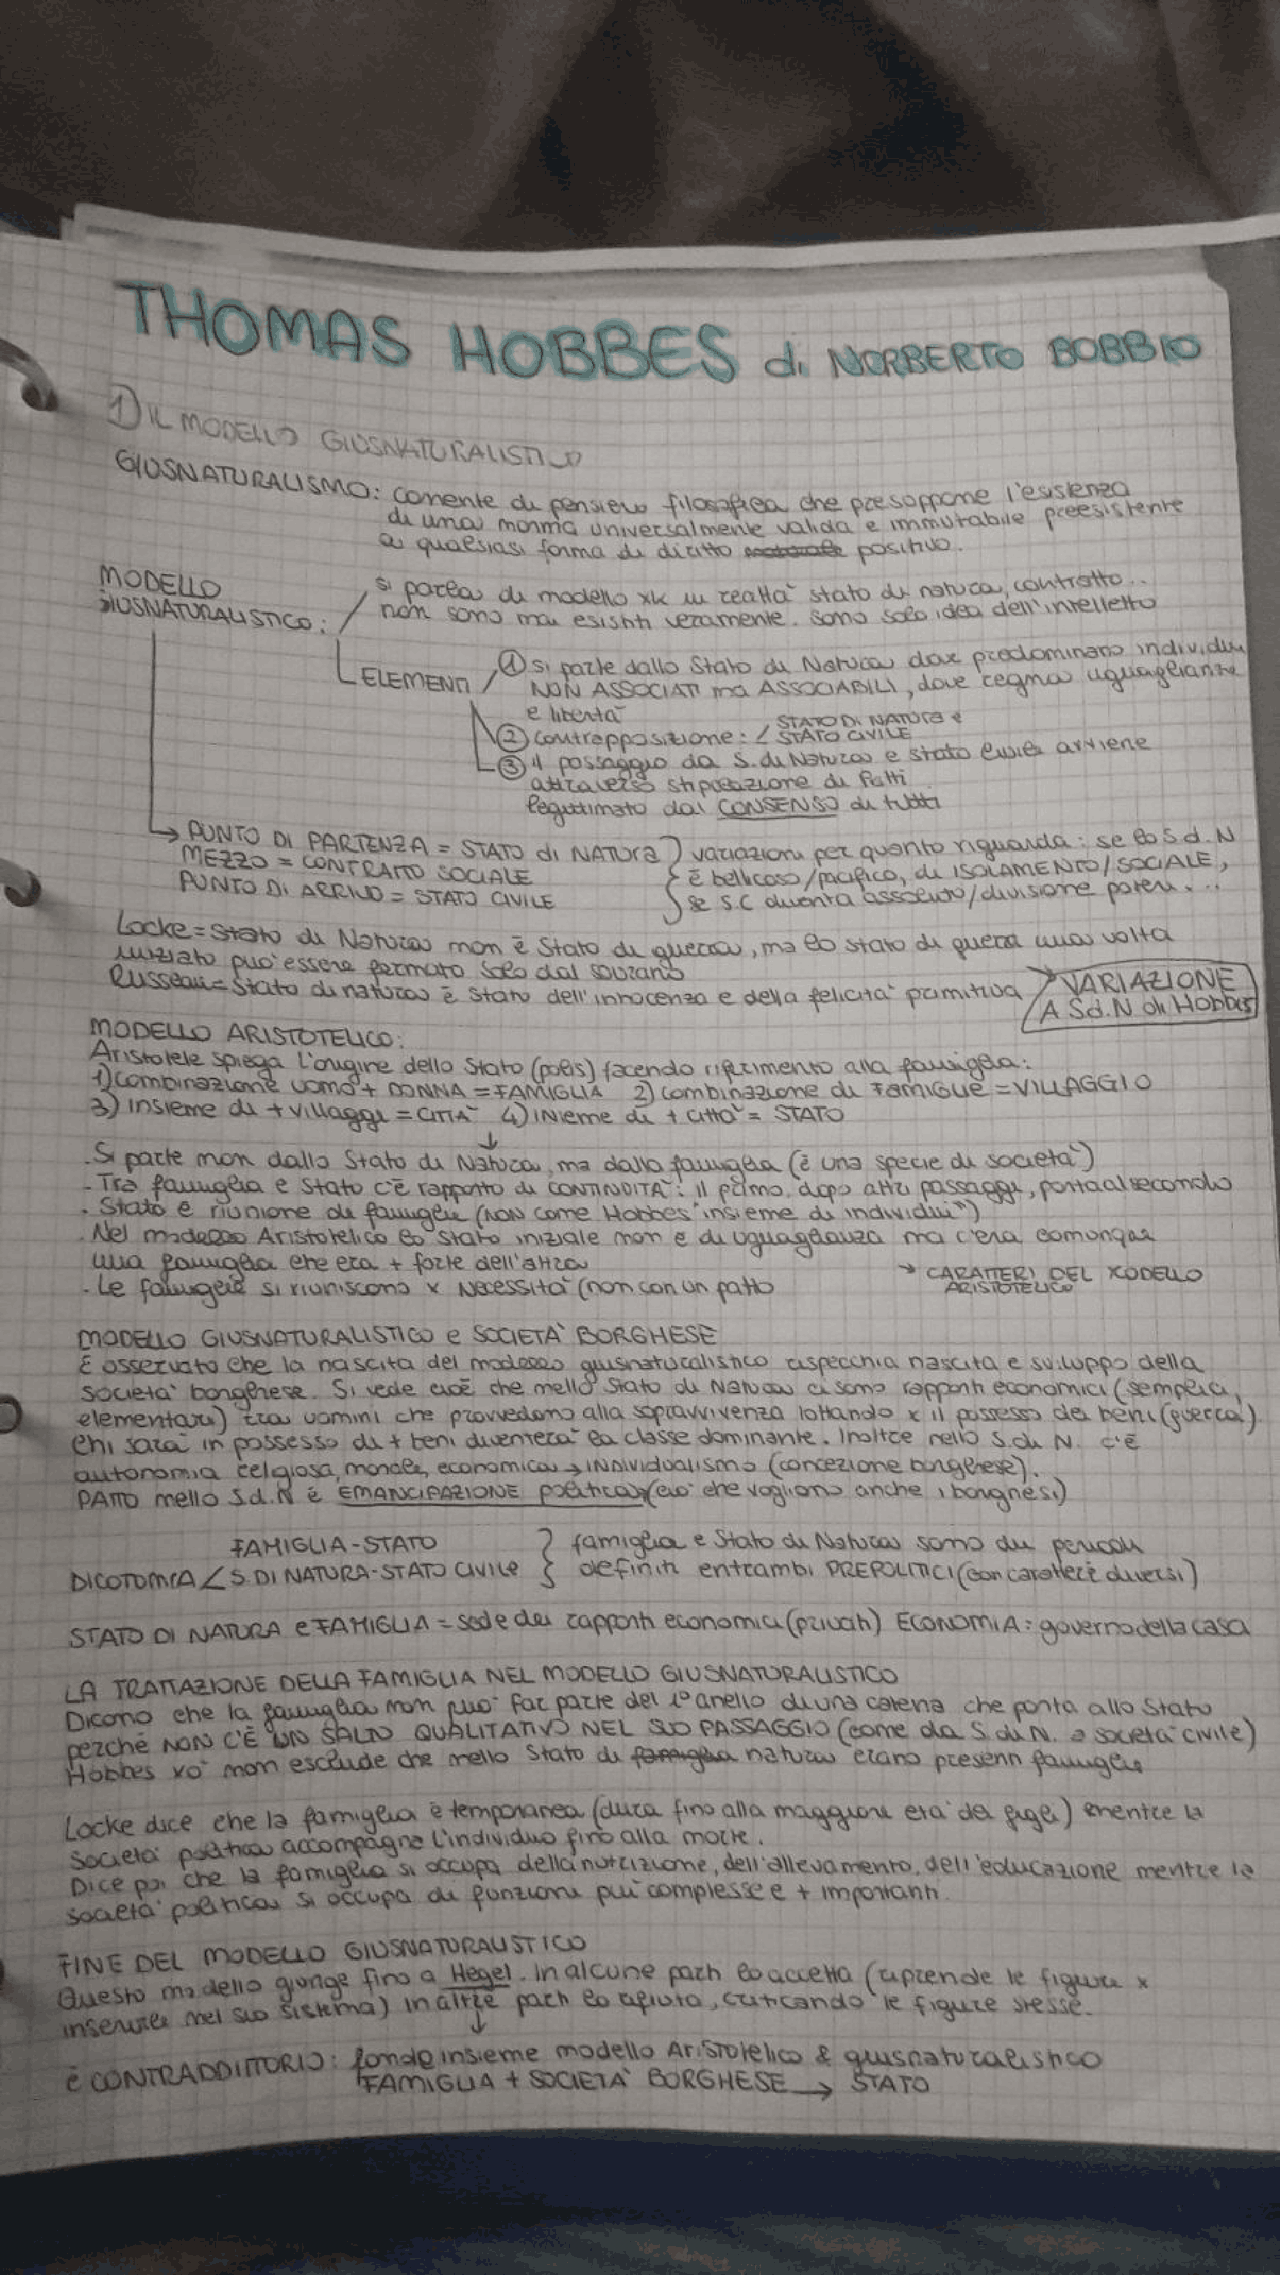 THOMAS HOBBES di NORBERTO BOBBIO
1) IL MODELLO GIUSNATURALISTICO
GIUSNATURALISMO: corrente di pensiero filosofica che presuppone l'esistenza
di una norma universalmente valida e immutabile preesistente
a qualsiasi forma di diritto naturale positivo.
MODELLO
GIUSNATURALISTICO:
si parla di modello xk in realtà stato di natura, contratto..
non sono mai esistiti veramente. Sono solo idea dell'intelletto
ELEMENTI
1 si parte dallo Stato di Natura dove predominano individui
NON ASSOCIATI ma ASSOCIABILI, dove regna uguaglianza
e libertà
2 contrapposizione: STATO DI NATURA e
STATO CIVILE
3 il passaggio da S. di Natura e stato civile avviene
attraverso stipulazione di Patti
legittimato dal CONSENSO di tutti
→ PUNTO DI PARTENZA = STATO di NATURA
MEZZO = CONTRATTO SOCIALE
PUNTO DI ARRIVO = STATO CIVILE
variazioni per quanto riguarda: se lo S.d.N
è bellicoso/pacifico, di ISOLAMENTO/SOCIALE,
se S.C diventa assoluto/divisione poteri...
Locke = Stato di Natura non è Stato di guerra, ma lo stato di guerra una volta
iniziato può essere fermato solo dal sovrano
Russeau = Stato di natura è stato dell'innocenza e della felicità primitiva
→ VARIAZIONE
A S.d.N di Hobbes
MODELLO ARISTOTELICO:
Aristotele spiega l'origine dello Stato (polis) facendo riferimento alla famiglia:
1) combinazione uomo + DONNA = FAMIGLIA 2) combinazione di FAMIGLIE = VILLAGGIO
3) insieme di + villaggi = CITTÀ 4) inieme di + città = STATO
↓
- Si parte non dallo Stato di Natura, ma dalla famiglia (è una specie di società)
- Tra famiglia e Stato c'è rapporto di CONTINUITÀ: il primo, dopo altri passaggi, porta al secondo
- Stato è riunione di famiglie (NON come Hobbes "insieme di individui")
- Nel modello Aristotelico lo stato iniziale non è di uguaglianza ma c'era comunque
una famiglia che era + forte dell'altra
- Le famiglie si riuniscono x necessità (non con un patto
→ CARATTERI DEL MODELLO
ARISTOTELICO
MODELLO GIUSNATURALISTICO e SOCIETÀ BORGHESE
È osservato che la nascita del modello giusnaturalistico rispecchia nascita e sviluppo della
società borghese. Si vede cioè che nello Stato di Natura ci sono rapporti economici (semplici,
elementari) tra uomini che provvedono alla sopravvivenza lottando x il possesso dei beni (guerra).
Chi sarà in possesso di + beni diventerà la classe dominante. Inoltre nello S. di N. c'è
autonomia religiosa, morale, economica → INDIVIDUALISMO (concezione borghese).
PATTO nello S.d.N è EMANCIPAZIONE politica (ciò che vogliono anche i borghesi)
FAMIGLIA-STATO
DICOTOMIA S. DI NATURA-STATO CIVILE
famiglia e Stato di Natura sono due periodi
definiti entrambi PREPOLITICI (con caratteri diversi)
STATO DI NATURA e FAMIGLIA = sede dei rapporti economici (privati) ECONOMIA: governo della casa
LA TRATTAZIONE DELLA FAMIGLIA NEL MODELLO GIUSNATURALISTICO
Dicono che la famiglia non può far parte del 1° anello di una catena che porta allo Stato
perché NON C'È UN SALTO QUALITATIVO NEL SUO PASSAGGIO (come da S. di N. a società civile)
Hobbes xò non esclude che nello Stato di famiglia natura erano presenti famiglie
Locke dice che la famiglia è temporanea (dura fino alla maggiore età dei figli) mentre la
società politica accompagna l'individuo fino alla morte.
Dice poi che la famiglia si occupa della nutrizione, dell'allevamento, dell'educazione mentre la
società politica si occupa di funzioni più complesse e + importanti.
FINE DEL MODELLO GIUSNATURALISTICO
Questo modello giunge fino a Hegel. In alcune parti lo accetta (riprende le figure x
inserirle nel suo sistema) in altre parti lo rifiuta, criticando le figure stesse.
↓
è CONTRADDITTORIO: fonde insieme modello Aristotelico & giusnaturalistico
FAMIGLIA + SOCIETÀ BORGHESE → STATO